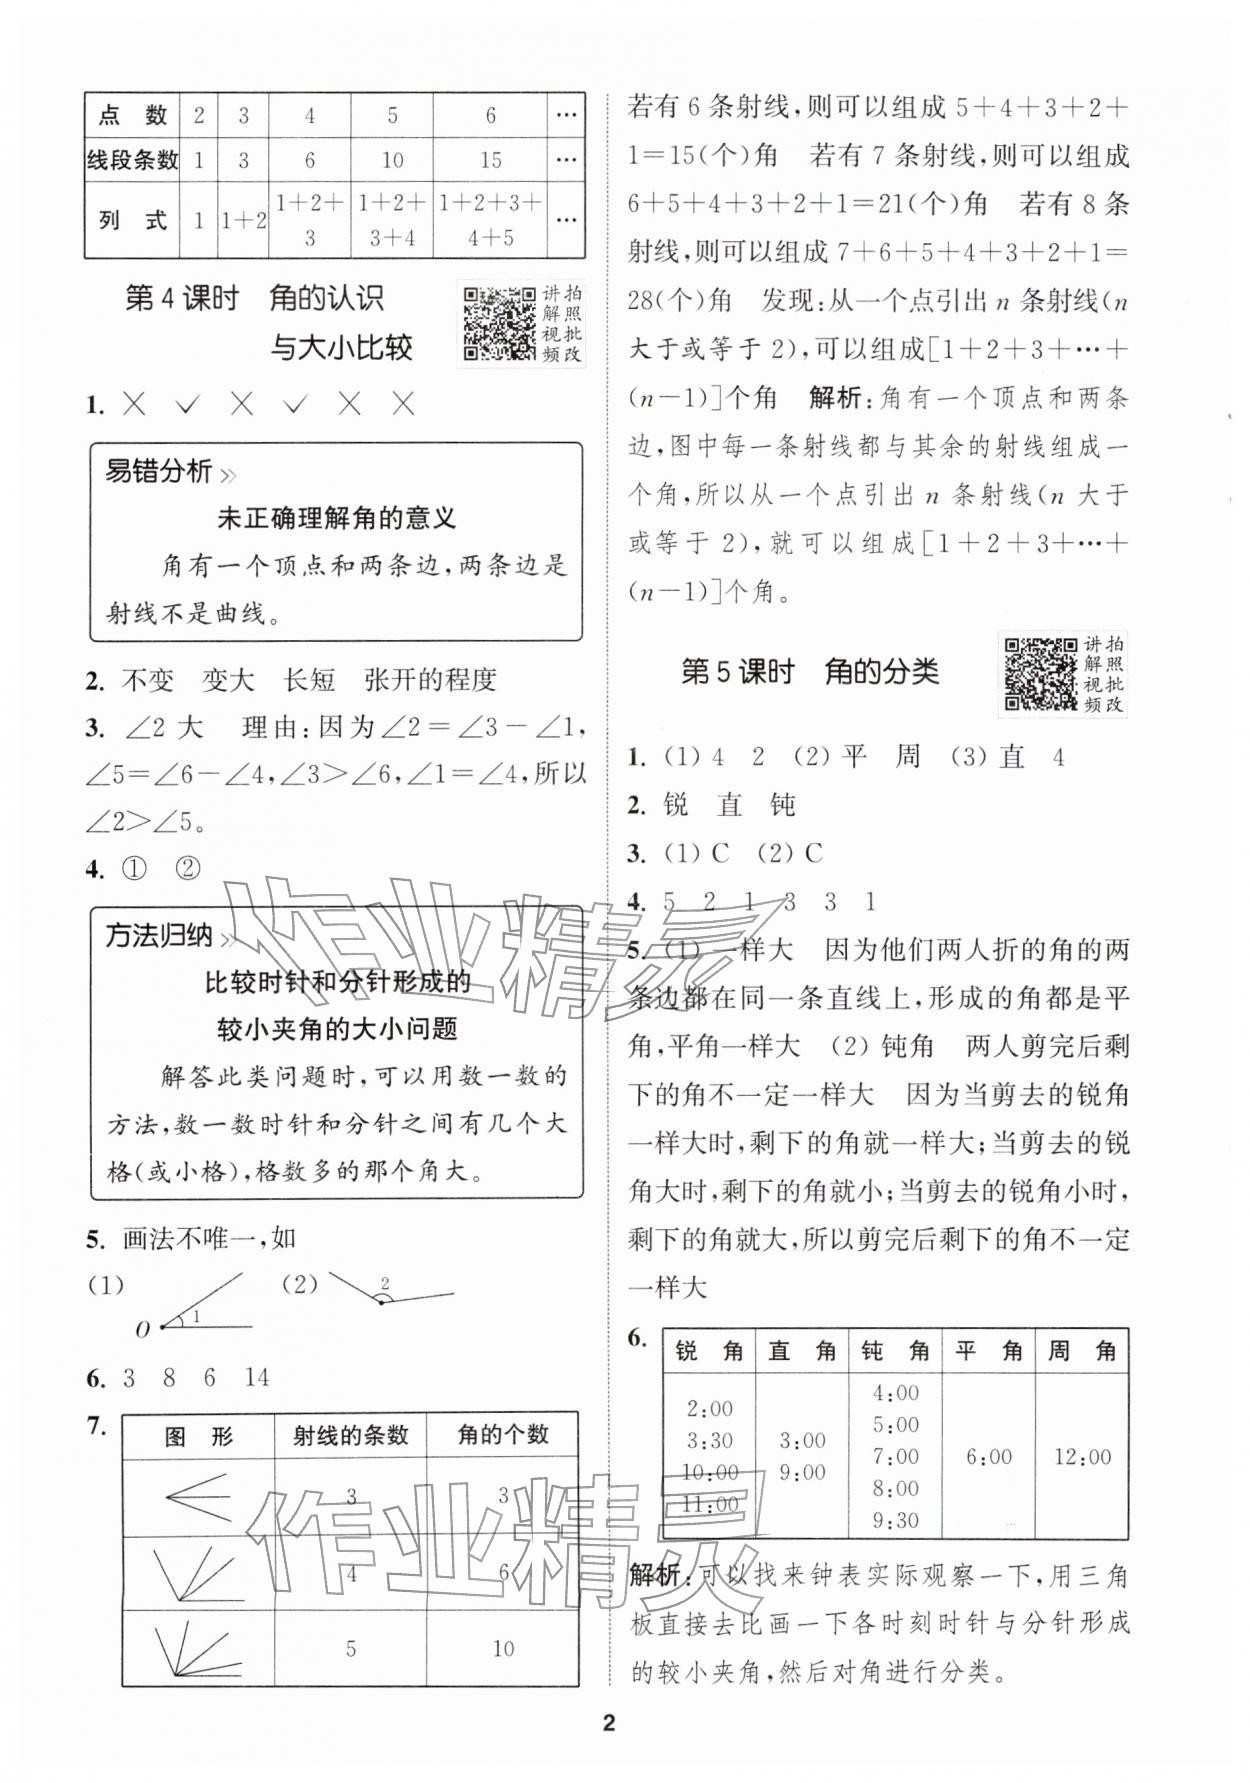 点 数 2 3 4 5 6 …
线段条数 1 3 6 10 15 …
列 式 1 1+2 1+2+3 1+2+3+4 1+2+3+4+5 …
第4课时 角的认识
与大小比较
讲解视频
拍照批改
1. × ✓ × ✓ × ×
易错分析»
未正确理解角的意义
角有一个顶点和两条边,两条边是
射线不是曲线。
2. 不变 变大 长短 张开的程度
3. ∠2大 理由:因为∠2=∠3-∠1,
∠5=∠6-∠4,∠3>∠6,∠1=∠4,所以
∠2>∠5。
4. ① ②
方法归纳»
比较时针和分针形成的
较小夹角的大小问题
解答此类问题时,可以用数一数的
方法,数一数时针和分针之间有几个大
格(或小格),格数多的那个角大。
5. 画法不唯一,如
(1) O 1 (2) 2
6. 3 8 6 14
7. 图 形 射线的条数 角的个数
3 3
4 6
5 10
若有6条射线,则可以组成5+4+3+2+
1=15(个)角 若有7条射线,则可以组成
6+5+4+3+2+1=21(个)角 若有8条
射线,则可以组成7+6+5+4+3+2+1=
28(个)角 发现:从一个点引出n条射线(n
大于或等于2),可以组成[1+2+3+…+
(n-1)]个角 解析:角有一个顶点和两条
边,图中每一条射线都与其余的射线组成一
个角,所以从一个点引出n条射线(n大于
或等于2),就可以组成[1+2+3+…+
(n-1)]个角。
第5课时 角的分类
讲解视频
拍照批改
1. (1)4 2 (2)平 周 (3)直 4
2. 锐 直 钝
3. (1)C (2)C
4. 5 2 1 3 3 1
5. (1)一样大 因为他们两人折的角的两
条边都在同一条直线上,形成的角都是平
角,平角一样大 (2)钝角 两人剪完后剩
下的角不一定一样大 因为当剪去的锐角
一样大时,剩下的角就一样大;当剪去的锐
角大时,剩下的角就小;当剪去的锐角小时,
剩下的角就大,所以剪完后剩下的角不一定
一样大
6. 锐 角 直 角 钝 角 平 角 周 角
2:00 3:30 10:00 11:00
3:00 9:00
4:00 5:00 7:00 8:00 9:30
6:00
12:00
解析:可以找来钟表实际观察一下,用三角
板直接去比画一下各时刻时针与分针形成
的较小夹角,然后对角进行分类。
作业精灵
作业精灵
2